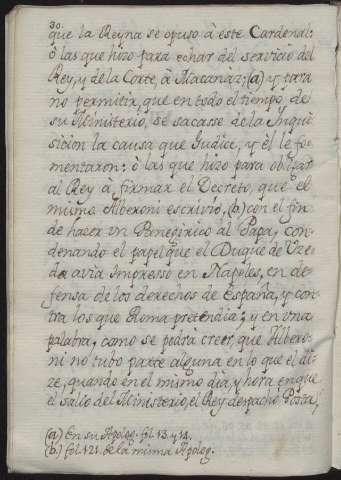 30.
que la Reyna se opuso à este Cardenal:
ò las que hizo para echar del servicio del
Rey, y de la Corte, à Macanaz; (a) y para
no permitir, que en todo el tiempo de
su Ministerio, se sacase de la Inqui
sicion la causa que Judice, y èl le fo-
mentaron: ò las que hizo para obligar
al Rey à firmar el Decreto, que el
mismo Alberoni escrivió, (b.) con el fin
de hazer un Panegirico al Papa, con
denando el papel que el Duque de Uze-
da avia Impresso en Napoles, en de-
fensa de los derechos de España, y con
tra los que Roma pretendia; y en una
palabra, como se podra creer, que Albero-
ni no tubo parte alguna en lo que el di-
ze, quando en el mismo dia, y hora en que
el salio del Ministerio, el Rey despachó Posta,
(a) En su Apolog. fol. 13. y 14.
(b.) fol. 121. de la misma Apolog.